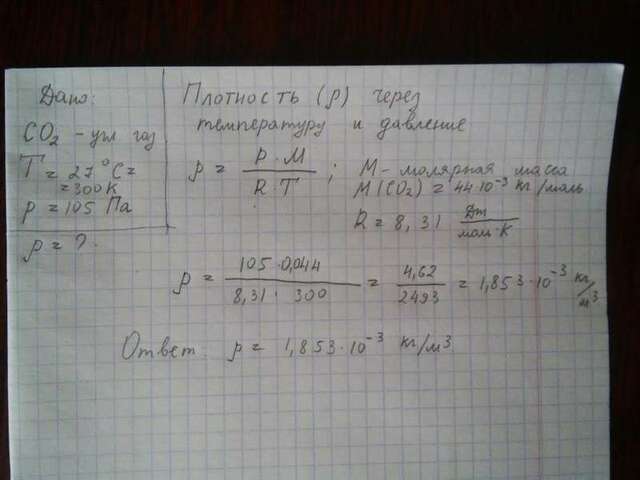 Дано:
CO₂ - угл газ
T = 27°C =
= 300 K
p = 105 Па
ρ = ?
Плотность (ρ) через
температуру и давление
ρ = p · M / R · T ; M - молярная масса
M(CO₂) = 44·10⁻³ кг/моль
R = 8,31 Дж / моль·K
ρ = 105 · 0,044 / 8,31 · 300 = 4,62 / 2493 = 1,853·10⁻³ кг/м³
Ответ: ρ = 1,853·10⁻³ кг/м³